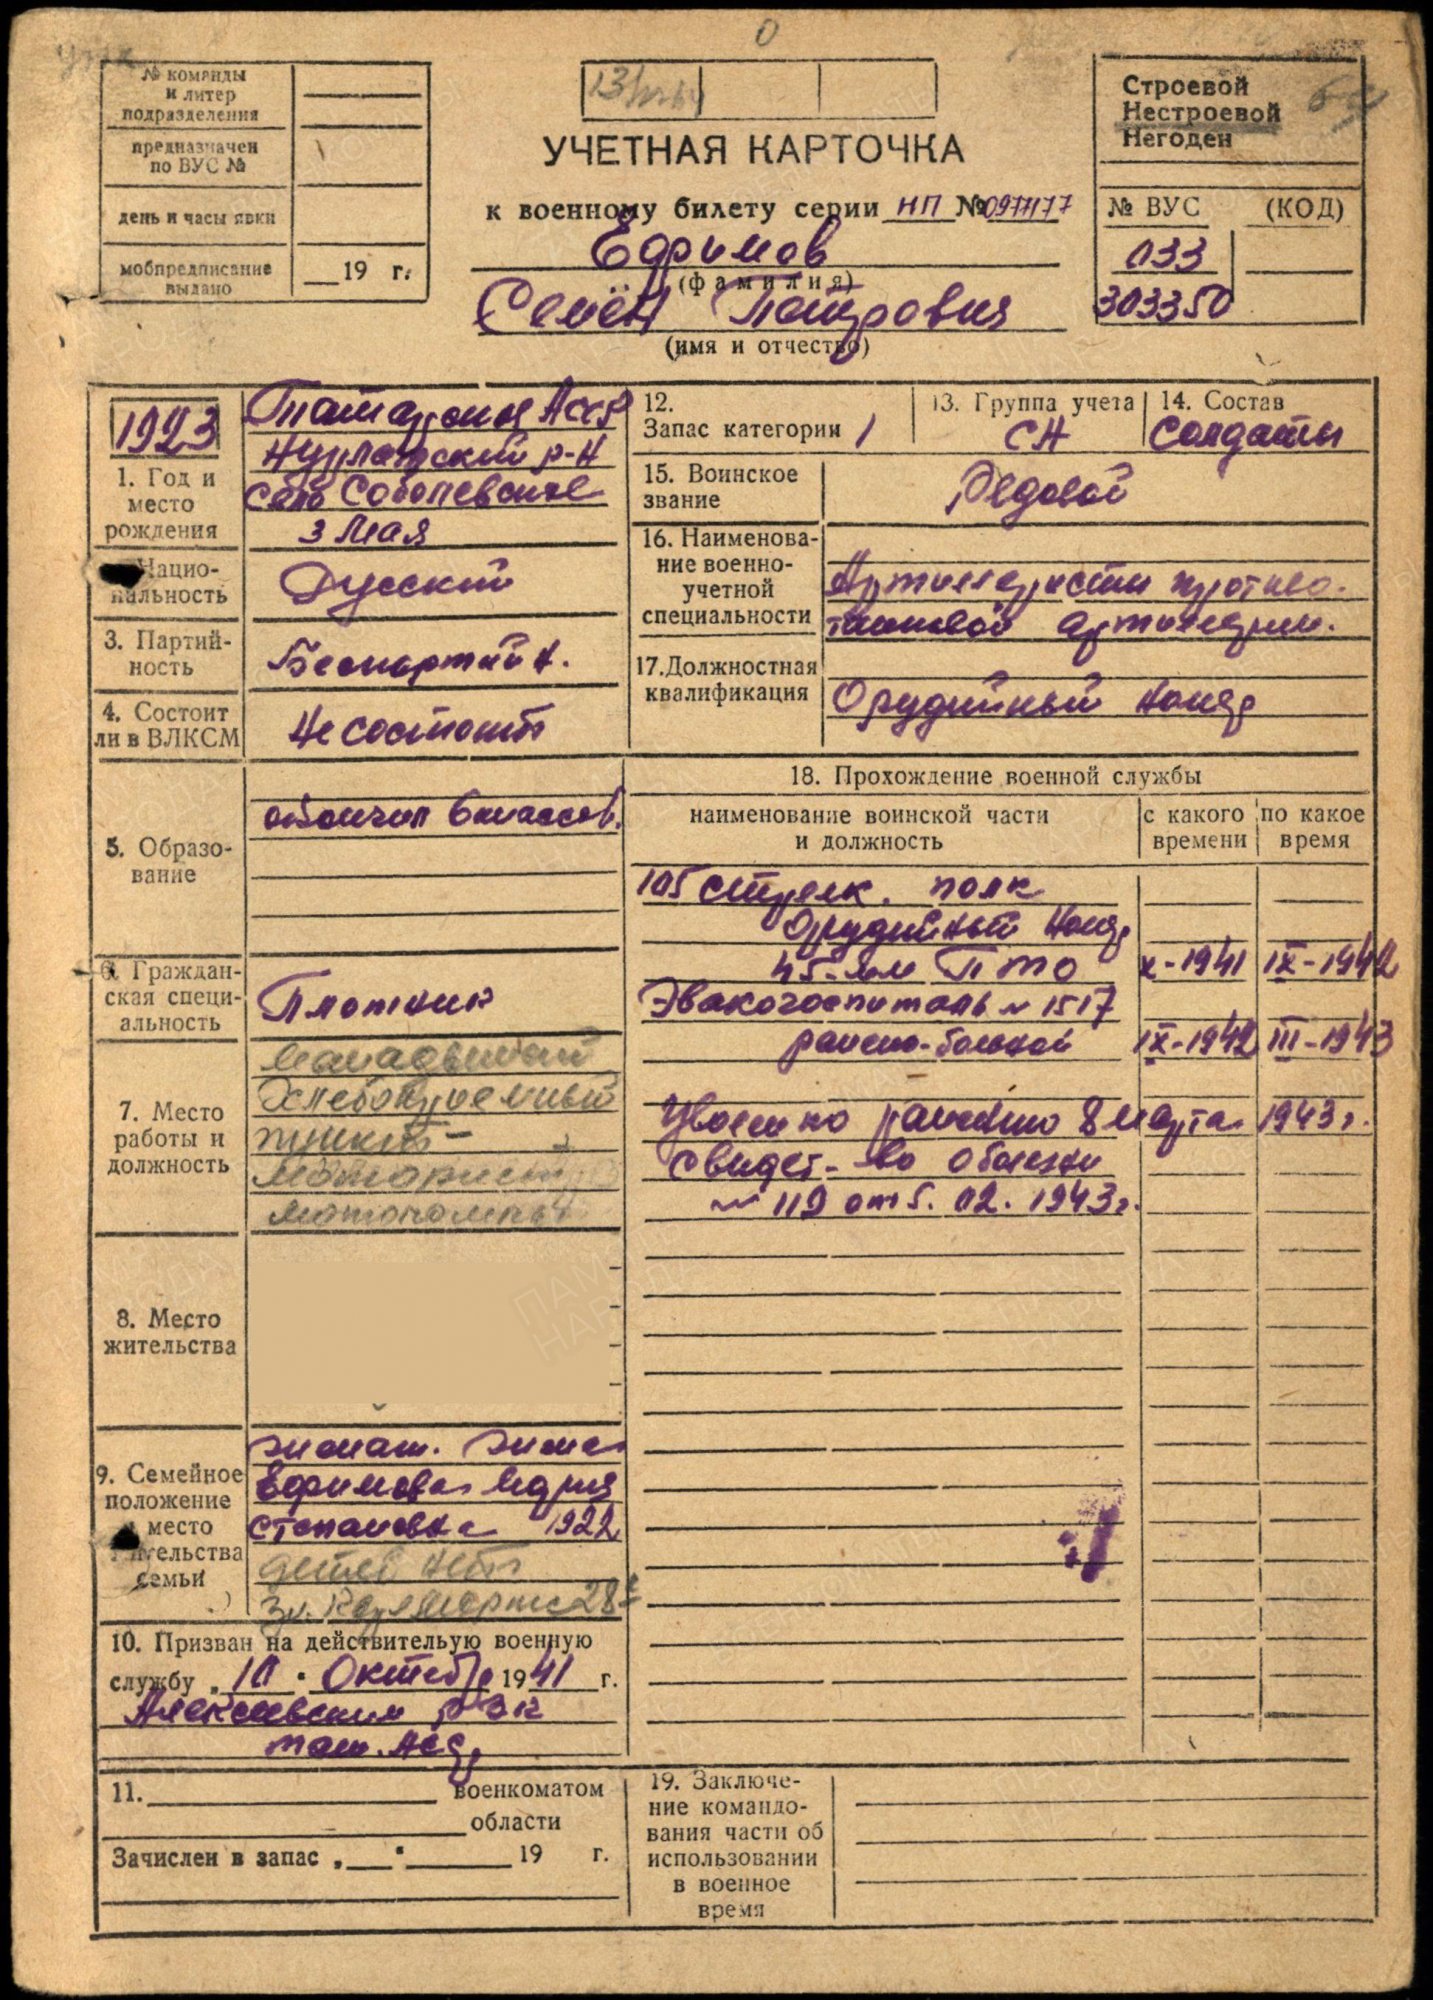 0
№ команды
и литер
подразделения
предназначен
по ВУС №
день и часы явки
мобпредписание
выдано
19 г.
УЧЕТНАЯ КАРТОЧКА
к военному билету серии НП №
Ефимов
(фамилия)
Семён Петрович
(имя и отчество)
Строевой
Нестроевой
Негоден
№ ВУС (КОД)
033
303350
1923
1. Год и
место
рождения
Татарская АССР
Нурлатский р-н
Село Соболевское
3 Мая
Нацио-
нальность
Русский
3. Партий-
ность
Беспартийн.
4. Состоит
ли в ВЛКСМ
Не состоит
5. Образо-
вание
окончил 6 классов.
6. Граждан-
ская специ-
альность
Плотник
7. Место
работы и
должность
Хлебоприемный
пункт -
моторист
мотопомпы
8. Место
жительства
9. Семейное
положение
место
тельства
семьи
женат. жена
Ефимова Мария
Степановна 1922
детей нет
10. Призван на действительую военную
службу „10" Октябр 1941 г.
Алексеевским рвк
тат. АССр
11. военкоматом
области
Зачислен в запас „ " 19 г.
12.
Запас категории 1
13. Группа учета
СА
14. Состав
Солдаты
15. Воинское
звание
Рядовой
16. Наименова-
ние военно-
учетной
специальности
Артиллеристы противо-
танковой артиллерии.
17. Должностная
квалификация
Орудийный номер
18. Прохождение военной службы
наименование воинской части
и должность
с какого
времени
по какое
время
105 стрелк. полк
Орудийный номер
45-мм ПТО X-1941 IX-1942
Эвакогоспиталь № 1517
ранено-больной IX-1942 III-1943
Уволен по ранению 8 марта 1943 г.
свидет-во о болезни
№ 119 от 5.02.1943г.
19. Заключе-
ние командо-
вания части об
использовании
в военное
время